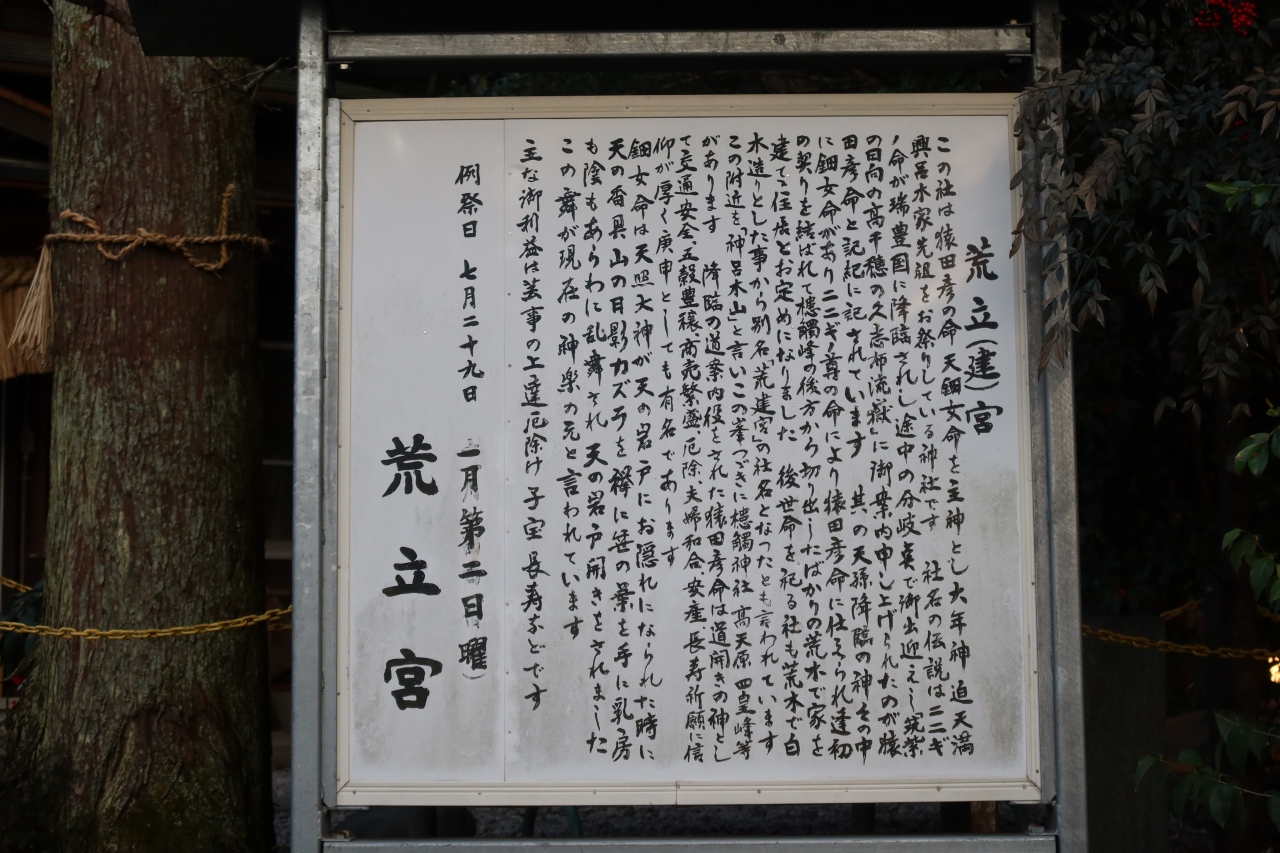 荒立(建)宮
この社は猿田彦の命 天鈿女命を主神とし大年神 迫天満
興呂木家先祖をお祭りしている神社です 社名の伝説はニニギ
ノ命が瑞豊国に降臨されし途中の分岐点で御出迎えし筑紫
の日向の高千穂の久志布流嶽」に御案内申し上げられたのが猿
田彦命と記紀に記されています 其の天孫降臨の神々の中
に鈿女命があり ニニギ尊の命により猿田彦命に仕えられ逢初
めの契りを結ばれて槵觸峰の後方から切り出したばかりの荒木で家を
建てて住居とお定めになりました 後世命を祀る社も荒木で白
木造りとした事から別名「荒建宮」の社名となったとも言われています
この附近を「神呂木山」と言いこの峯つづきに槵觸神社 高天原 四皇峰等
があります 降臨の道案内役をされた猿田彦命は道開きの神とし
て交通安全五穀豊穣、商売繁盛厄除、夫婦和合、安産、長寿祈願に信
仰が厚く庚申としても有名であります
鈿女命は天照大神が天の岩戸にお隠れになられた時に
天の香具山の日影カズラを襷に笹の葉を手に乳房
も陰もあらわに乱舞され 天の岩戸開きをされました
この舞が現在の神楽の元と言われています
主な御利益は芸事の上達厄除け 子宝 長寿などです
例祭日 七月二十九日 一月 第二日曜)
荒立宮